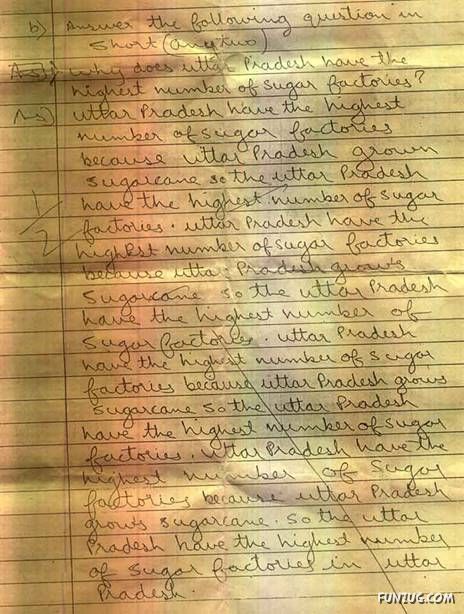 b) Answer the following question in
short (any two)
Ans) why does uttar Pradesh have the
highest number of sugar factories?
Ans) uttar Pradesh have the highest
number of sugar factories
because uttar Pradesh grown
sugarcane so the uttar Pradesh
have the highest number of sugar
factories. uttar Pradesh have the
highest number of sugar factories
because uttar Pradesh grows
sugarcane so the uttar Pradesh
have the highest number of
sugar factories. uttar Pradesh
have the highest number of sugar
factories because uttar Pradesh grows
sugarcane so the uttar Pradesh
have the highest number of sugar
factories. uttar Pradesh have the
highest number of sugar
factories because uttar Pradesh
grows sugarcane. So the uttar
Pradesh have the highest number
of sugar factories in uttar
Pradesh.
1/2
FUN2UG.COM